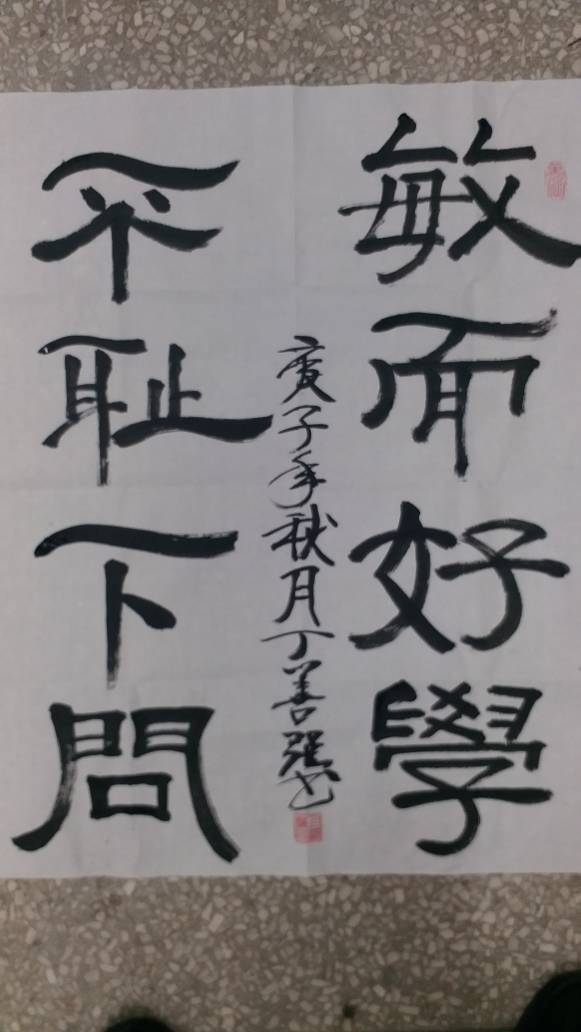 敏而好學
不耻下問
庚子年秋月丁善强书